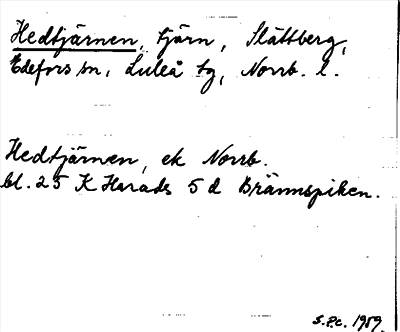 Hedtjärnen, tjärn, Slättberg,
Edefors sn, Luleå tg, Norrb. l.
Hedtjärnen, ek Norrb.
bl. 25 K Harads 5 d Brännspiken.
S.P.C. 1959.